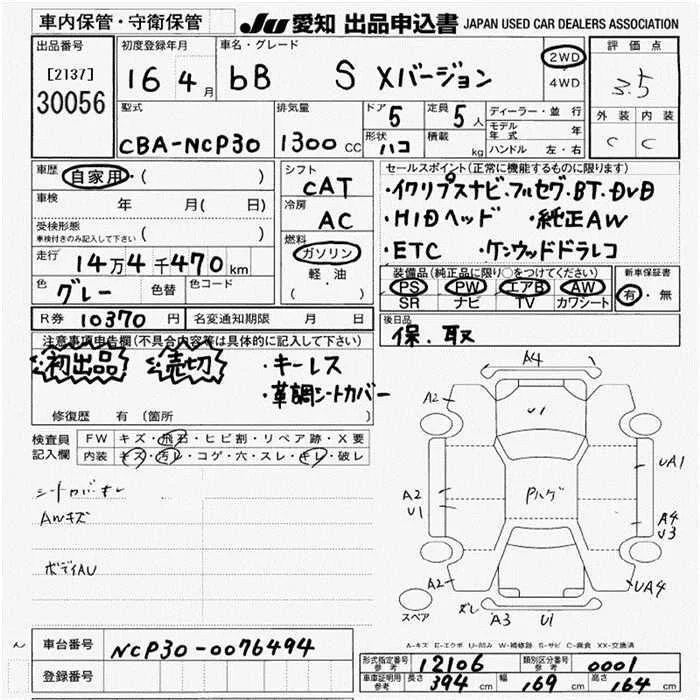 車内保管・守衛保管
JU 愛知 出品申込書 JAPAN USED CAR DEALERS ASSOCIATION
出品番号
[2137]
30056
初度登録年月
16 4月
車名・グレード
bB S Xバージョン
2WD
4WD
評価点
3.5
外装 内装
C C
型式
CBA-NCP30
排気量
1300 CC
ドア 5
形状 ハコ
定員 5人
積載 kg
ディーラー・並行
モデル年式 年
ハンドル 左・右
車歴 自家用・( )
車検 年 月( 日)
受検形態
車検付きのみ記入して下さい ( )
走行 14万4千470km
色 グレー 色替 色コード
シフト
CAT
冷房
AC
燃料
ガソリン
軽油
( )
セールスポイント(正常に機能するものに限ります)
・イクリプスナビ・フルセグ・BT・DVD
・HIDヘッド ・純正AW
・ETC ・ケンウッドドラレコ
装備品(純正品に限り○をつけてください)
PS PW エアB AW
SR ナビ TV カワシート
新車保証書
有・無
R券 10370円 名変通知期限 月 日
後日品
保.取
注意事項申告欄(不具合内容等は具体的に記入して下さい)
初出品 売切 ・キーレス
・革調シートカバー
修復歴 有(箇所 )
検査員記入欄
FW キズ・飛石・ヒビ割・リペア跡・X要
内装 キズ・汚レ・コゲ・穴・スレ・キレ・破レ
シートカバーキレ
AWキズ
ボディAU
A4
A2
U1
A2
U1
Pハゲ
UA1
A4
U3
A2
UA4
スペア
ズレ
A3
U1
A-キズ E-エクボ U-凹み W-補修跡 S-サビ C-腐食 XX-交換済
車台番号 NCP30-0076494
登録番号
形式指定番号 参考 12106 類別区分番号 参考 0001
車庫証明用 参考 長さ 394 cm 幅 169 cm 高さ 164 cm